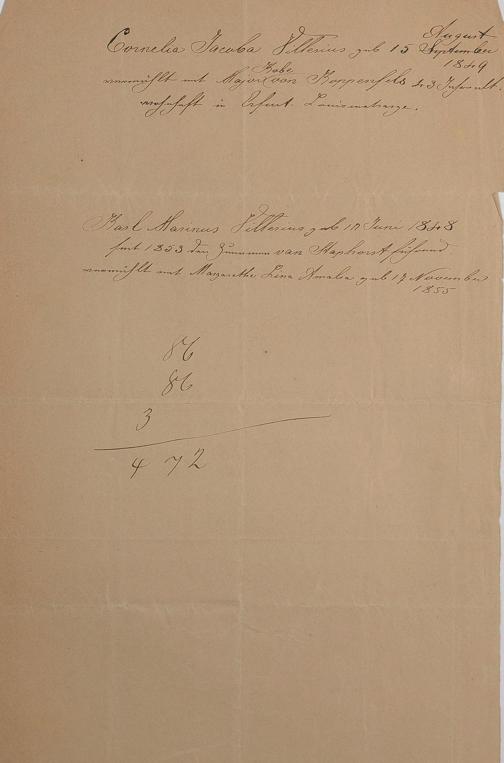 August
Cornelia Jacoba Vitterius geb 15 September
1849
Bobe
vermählt mit Major von Koppenfels
wohnhaft in Erfurt
Karl Marinus Vitterius geb 17 Juni 1848
seit 1853 den Zunamen van Staphorst führend
vermählt mit Margarethe Lina Amalia geb 17 November
1855
86
86
3
4 72